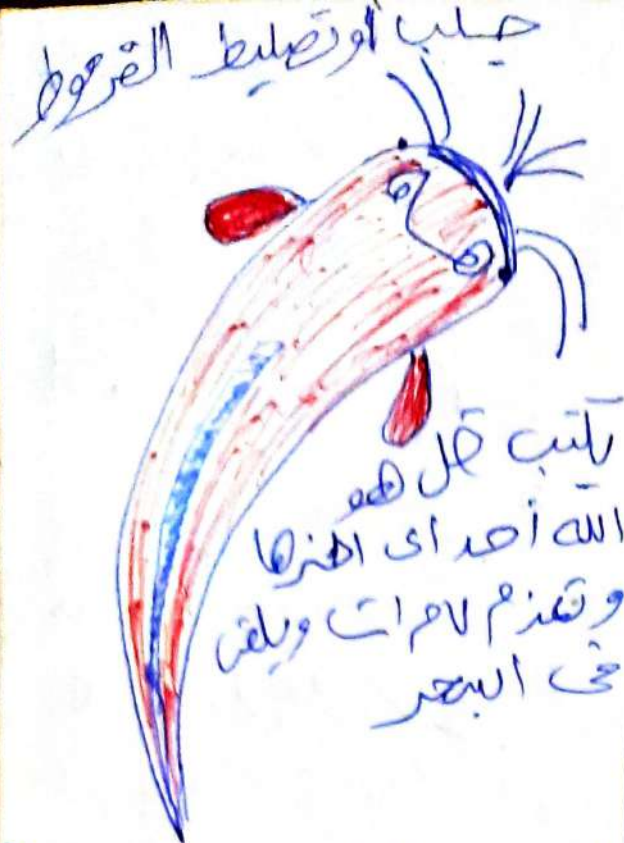 جلب أو تصليط القرموط
يكتب قل هو
الله أحد اى اخرها
وتعزم ٧ مرات ويلقى
فى البحر